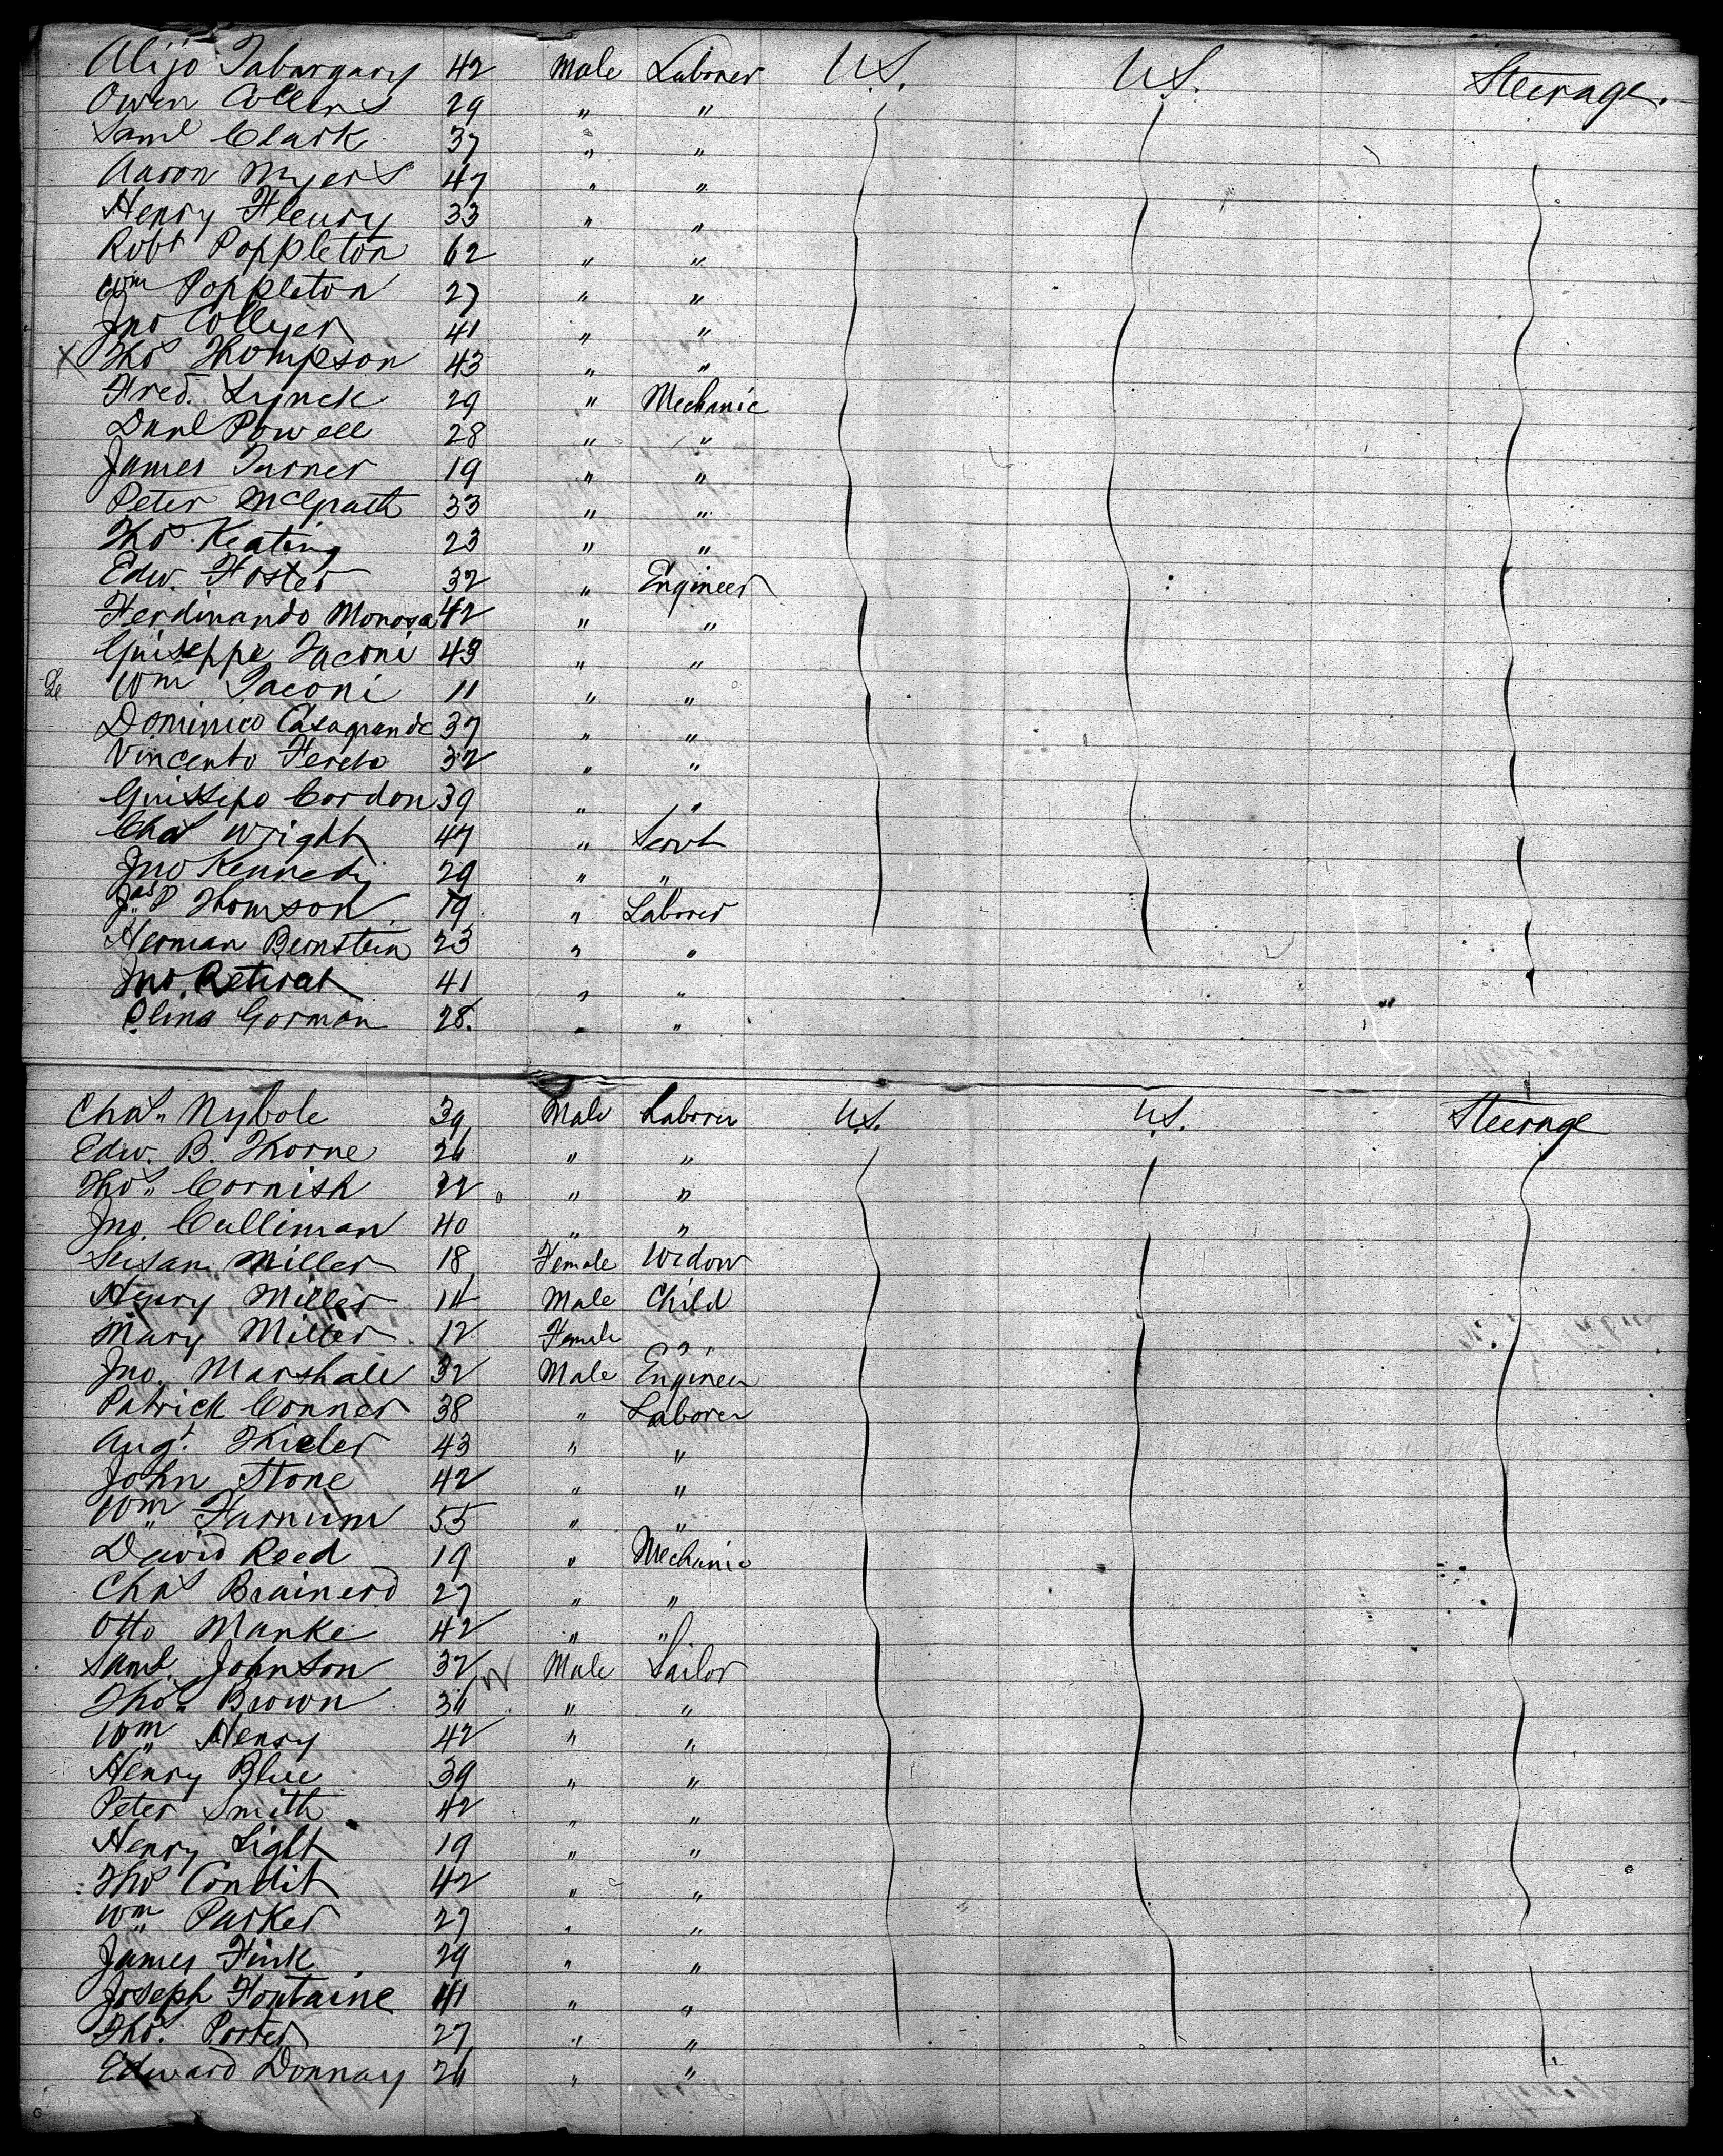 Alijo Tabargary 42 Male Laborer U.S. U.S. Steerage.
Owen Collins 29 " "
Saml Clark 37 " "
Aaron Myers 47 " "
Henry Fleury 33 " "
Robt Poppleton 62 " "
Wm Poppleton 27 " "
Jno Collyer 41 " "
X Thos Thompson 43 " "
Fred. Lynck 29 " Mechanic
Danl Powell 28 " "
James Turner 19 " "
Peter McGrath 33 " "
Thos Keating 23 " "
Edw. Foster 32 " Engineer
Ferdinando Monosa 42 " "
Guiseppe Taconi 43 " "
Wm Taconi 11 " "
Dominico Casagrande 37 " "
Vincento Fereto 32 " "
Guissepo Cordon 39 " "
Chas Wright 47 " Servt
Jno Kennedy 29 " "
Jas P Thomson 19 " Laborer
Herman Bernstein 23 " "
Jno. Retirat 41 " "
Gorman 28. " "
Chas. Nybole 39 Male Laborer U.S. U.S. Steerage
Edw. B. Thorne 26 " "
Thos. Cornish 22 " "
Jno. Culliman 40 " "
Susan Miller 18 Female Widow
Henry Miller 14 Male Child
Mary Miller 12 Female "
Jno. Marshall 32 Male Engineer
Patrick Conner 38 " Laborer
Augt. Thieler 43 " "
John Stone 42 " "
Wm Farnum 55 " "
David Reed 19 " Mechanic
Chas Brainerd 27 " "
Otto Manke 42 " "
Saml. Johnson 32 Male Sailor
Thos. Brown 36 " "
Wm Henry 42 " "
Henry Blue 39 " "
Peter Smith 42 " "
Henry Light 19 " "
Thos Condit 42 " "
Wm Parker 27 " "
James Fink 29 " "
Joseph Fontaine 41 " "
Thos. Porter 27 " "
Edward Donnay 26 " "